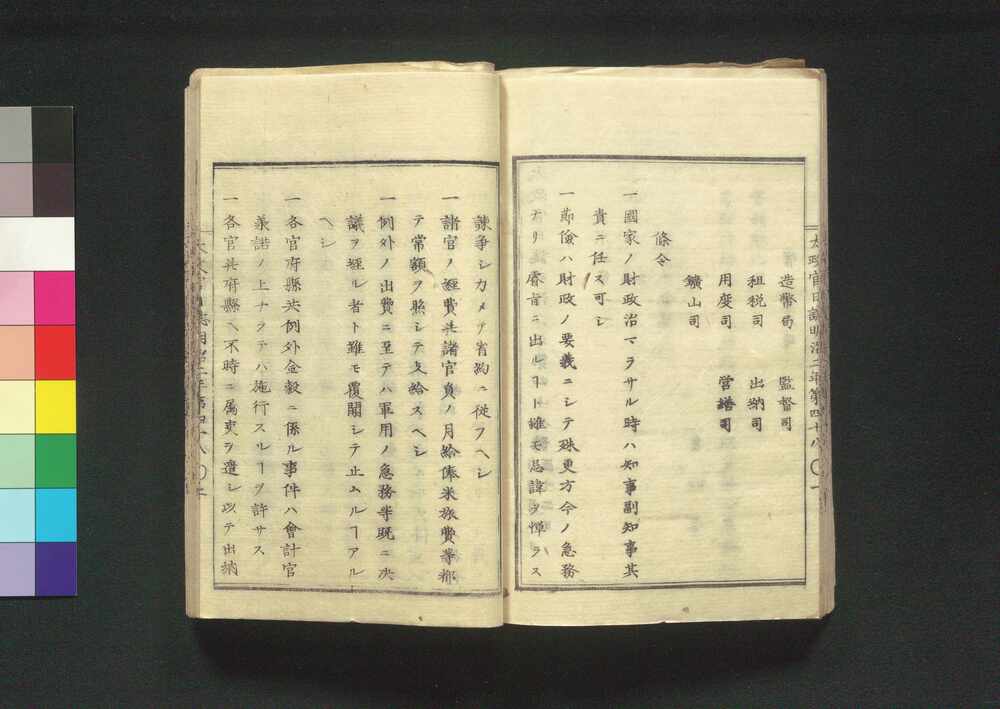 太政官日誌明治二年第四十八 〇一
造幣局 監督司
租税司 出納司
用度司 営繕司
鑛山司
條令
一國家ノ財政治マラサル時ハ知事副知事其
責ニ任ス可シ
一節儉ハ財政ノ要義ニシテ殊更方今ノ急務
ナリ睿旨ニ出ルヿト雖モ忌諱ヲ憚ラス
諫争シカメテ省約ニ從フヘシ
一諸官ノ經費共諸官員ノ月給俸米旅費等都
テ常額ヲ照シテ支給スヘシ
一例外ノ出費ニ至テハ軍用ノ急務等既ニ决
議ヲ經ル者ト雖モ覆閲シテ止ムルヿアル
ヘシ
一各官府縣共例外金穀ニ係ル事件ハ會計官
義諾ノ上ナラテハ施行スルヿヲ許サス
一各官共府縣ヘ不時ニ属吏ヲ遣シ以テ出納